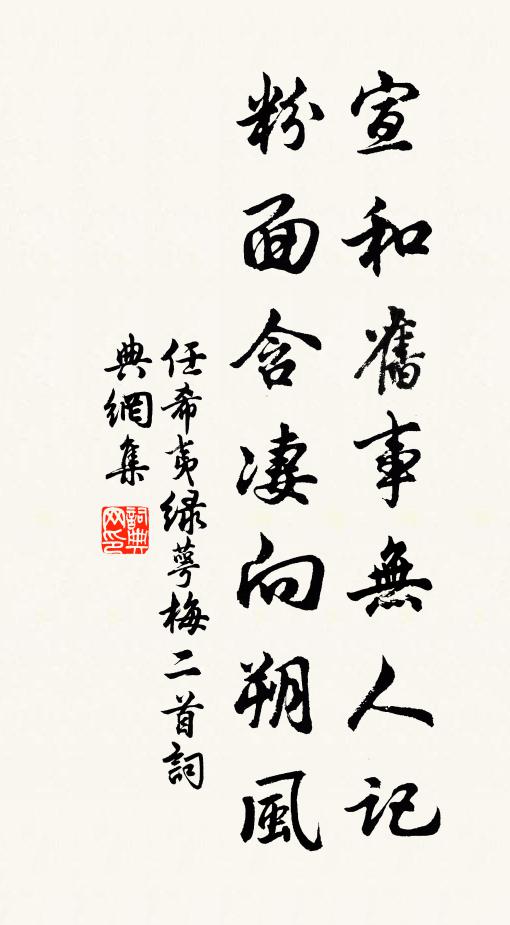 宣和舊事無人記
粉面含淒向朔風
任希夷绿萼梅二首詞
典網集
詞典网印